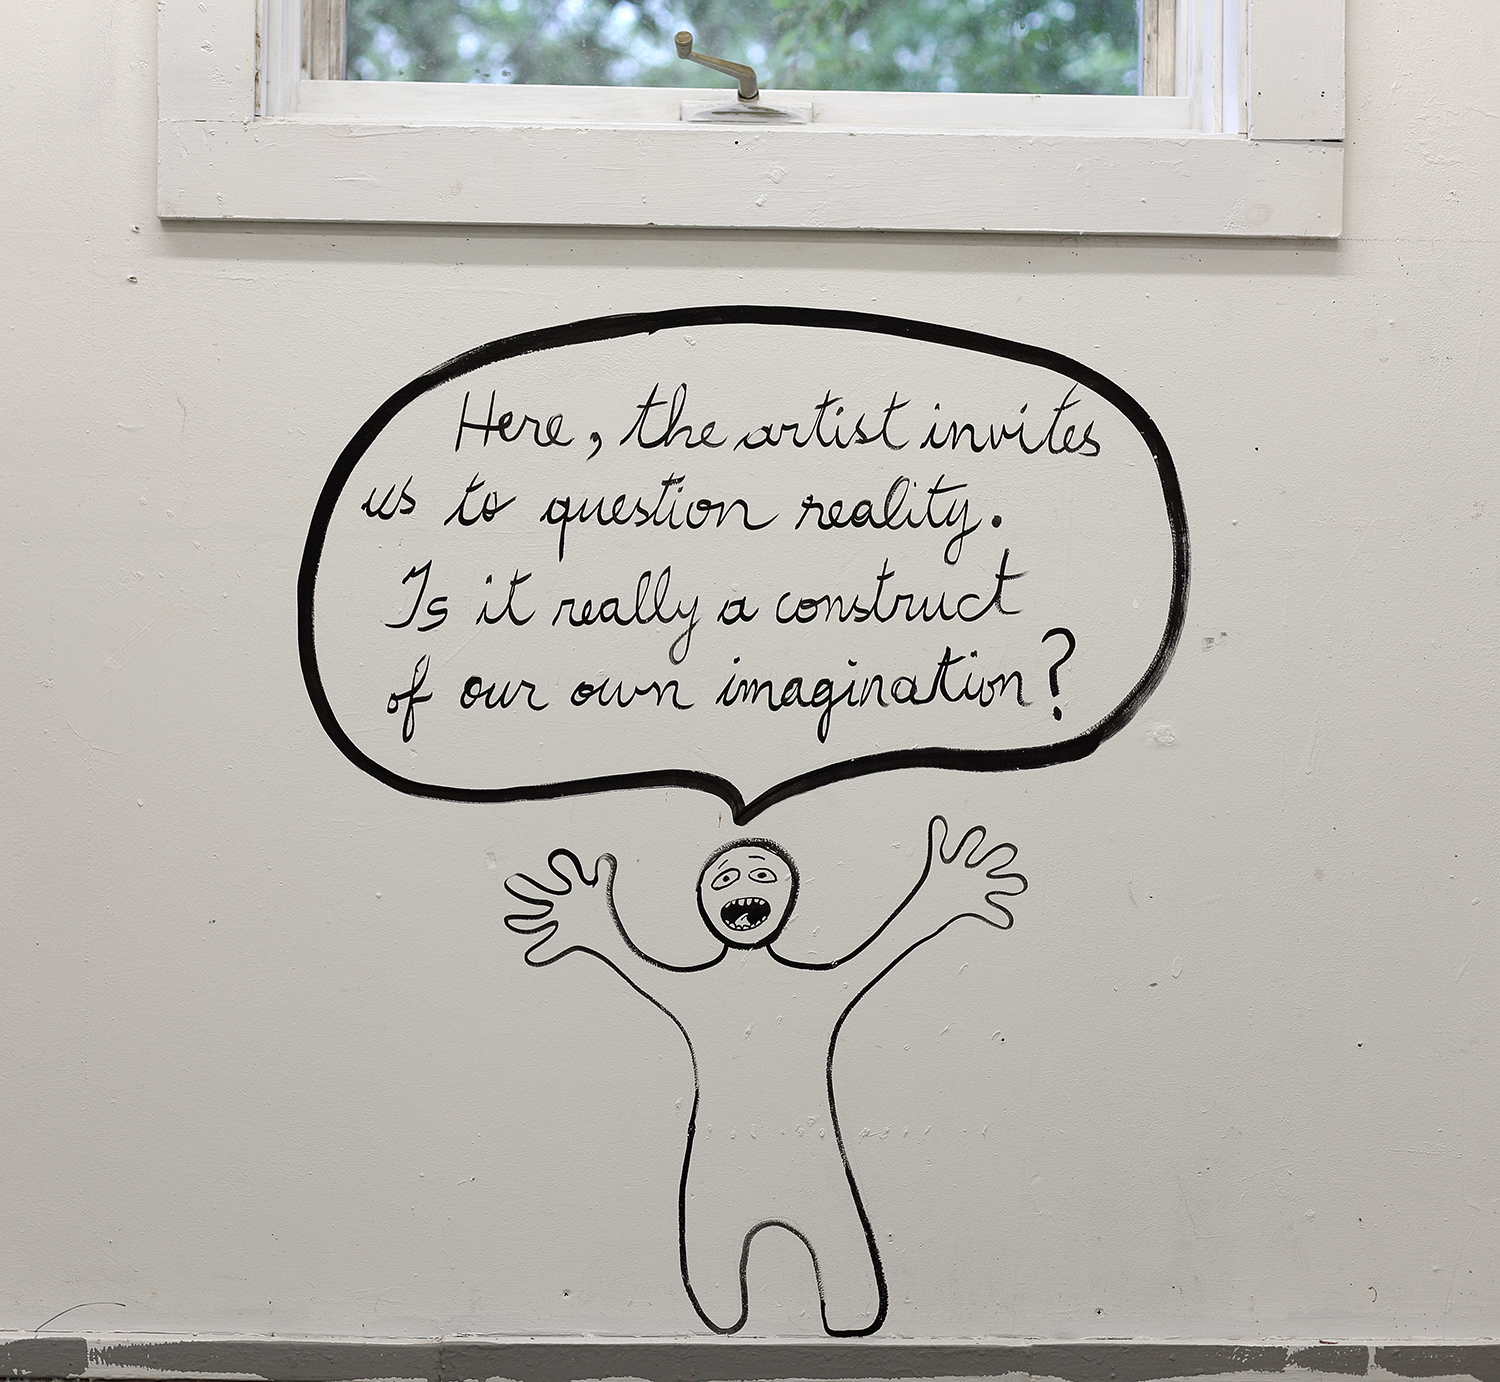 Here, the artist invites
us to question reality.
Is it really a construct
of our own imagination?